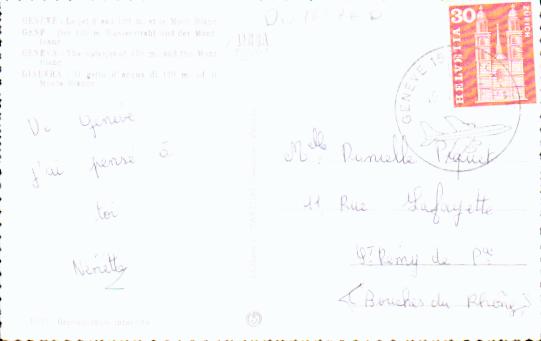 GENÈVE - Le jet d'eau 130 m. et le Mont Blanc
GENF - Der 130 m. Wasserstrahl und der Mont
Blanc
GENEVA - The waterjet 130 m. and the Mont
Blanc
GINEVRA - Il getto d'acqua di 130 m. ed il
Monte Bianco
30
HELVETIA
ZÜRICH
GENÈVE 15
De Genève
j'ai pensé à
toi
Nénette
Melle Danielle Piquet
11 Rue Lafayette
St Rémy de Pce
(Bouches du Rhône)
Reproduction interdite